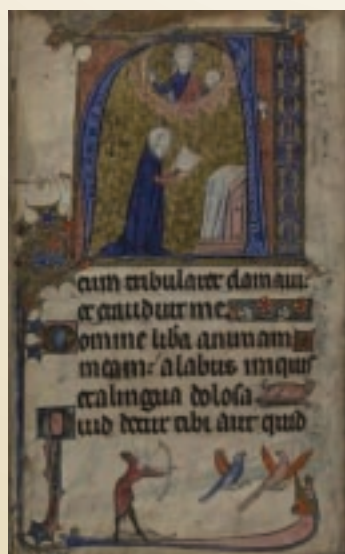 cum tribularer clamaui
et exaudiuit me
Domine libera animam
meam a labiis iniquis
et a lingua dolosa
Quid detur tibi aut quid